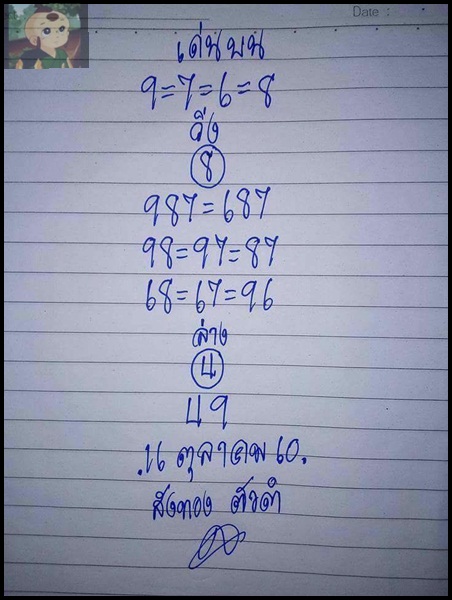 Date :
เด่นบน
9=7=6=8
วิ่ง
8
987=687
98=97=87
68=67=96
ล่าง
4
49
.16 ตุลาคม 60.
สังทอง ตัวดำ